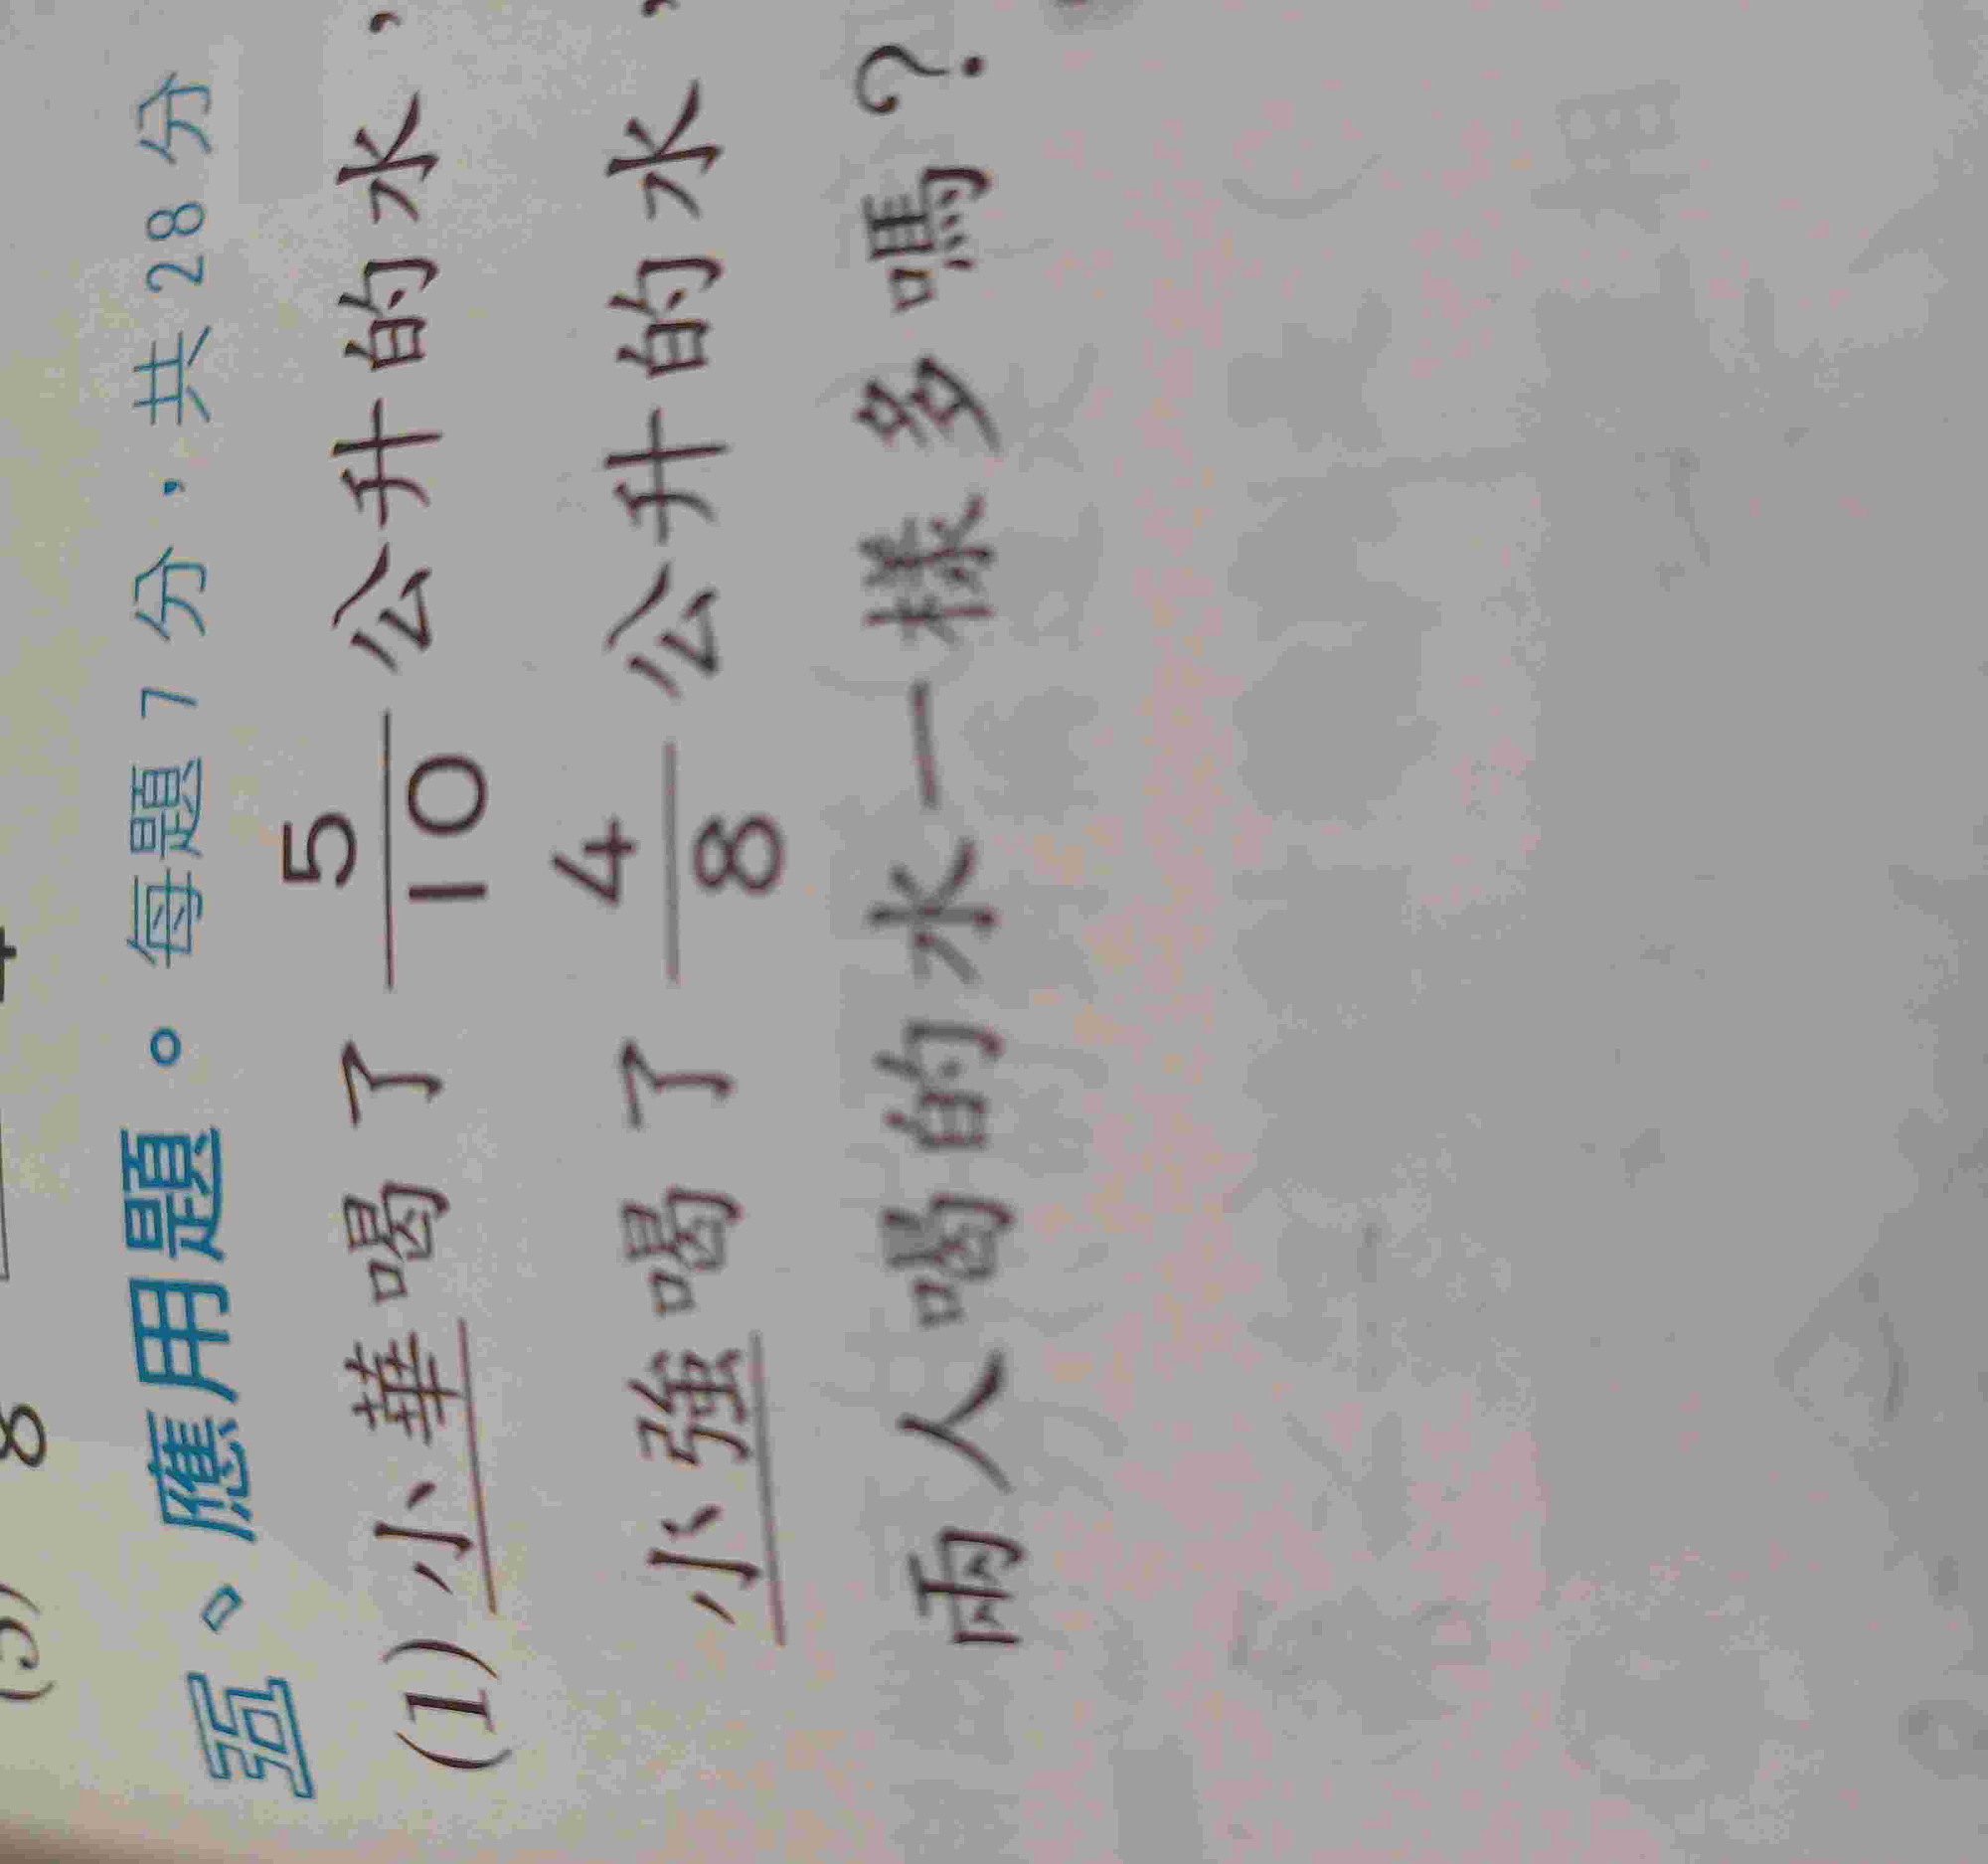 (3) 8
五、應用題。每題7分，共28分
(1)小華喝了5/10公升的水，
小強喝了4/8公升的水，
兩人喝的水一樣多嗎？